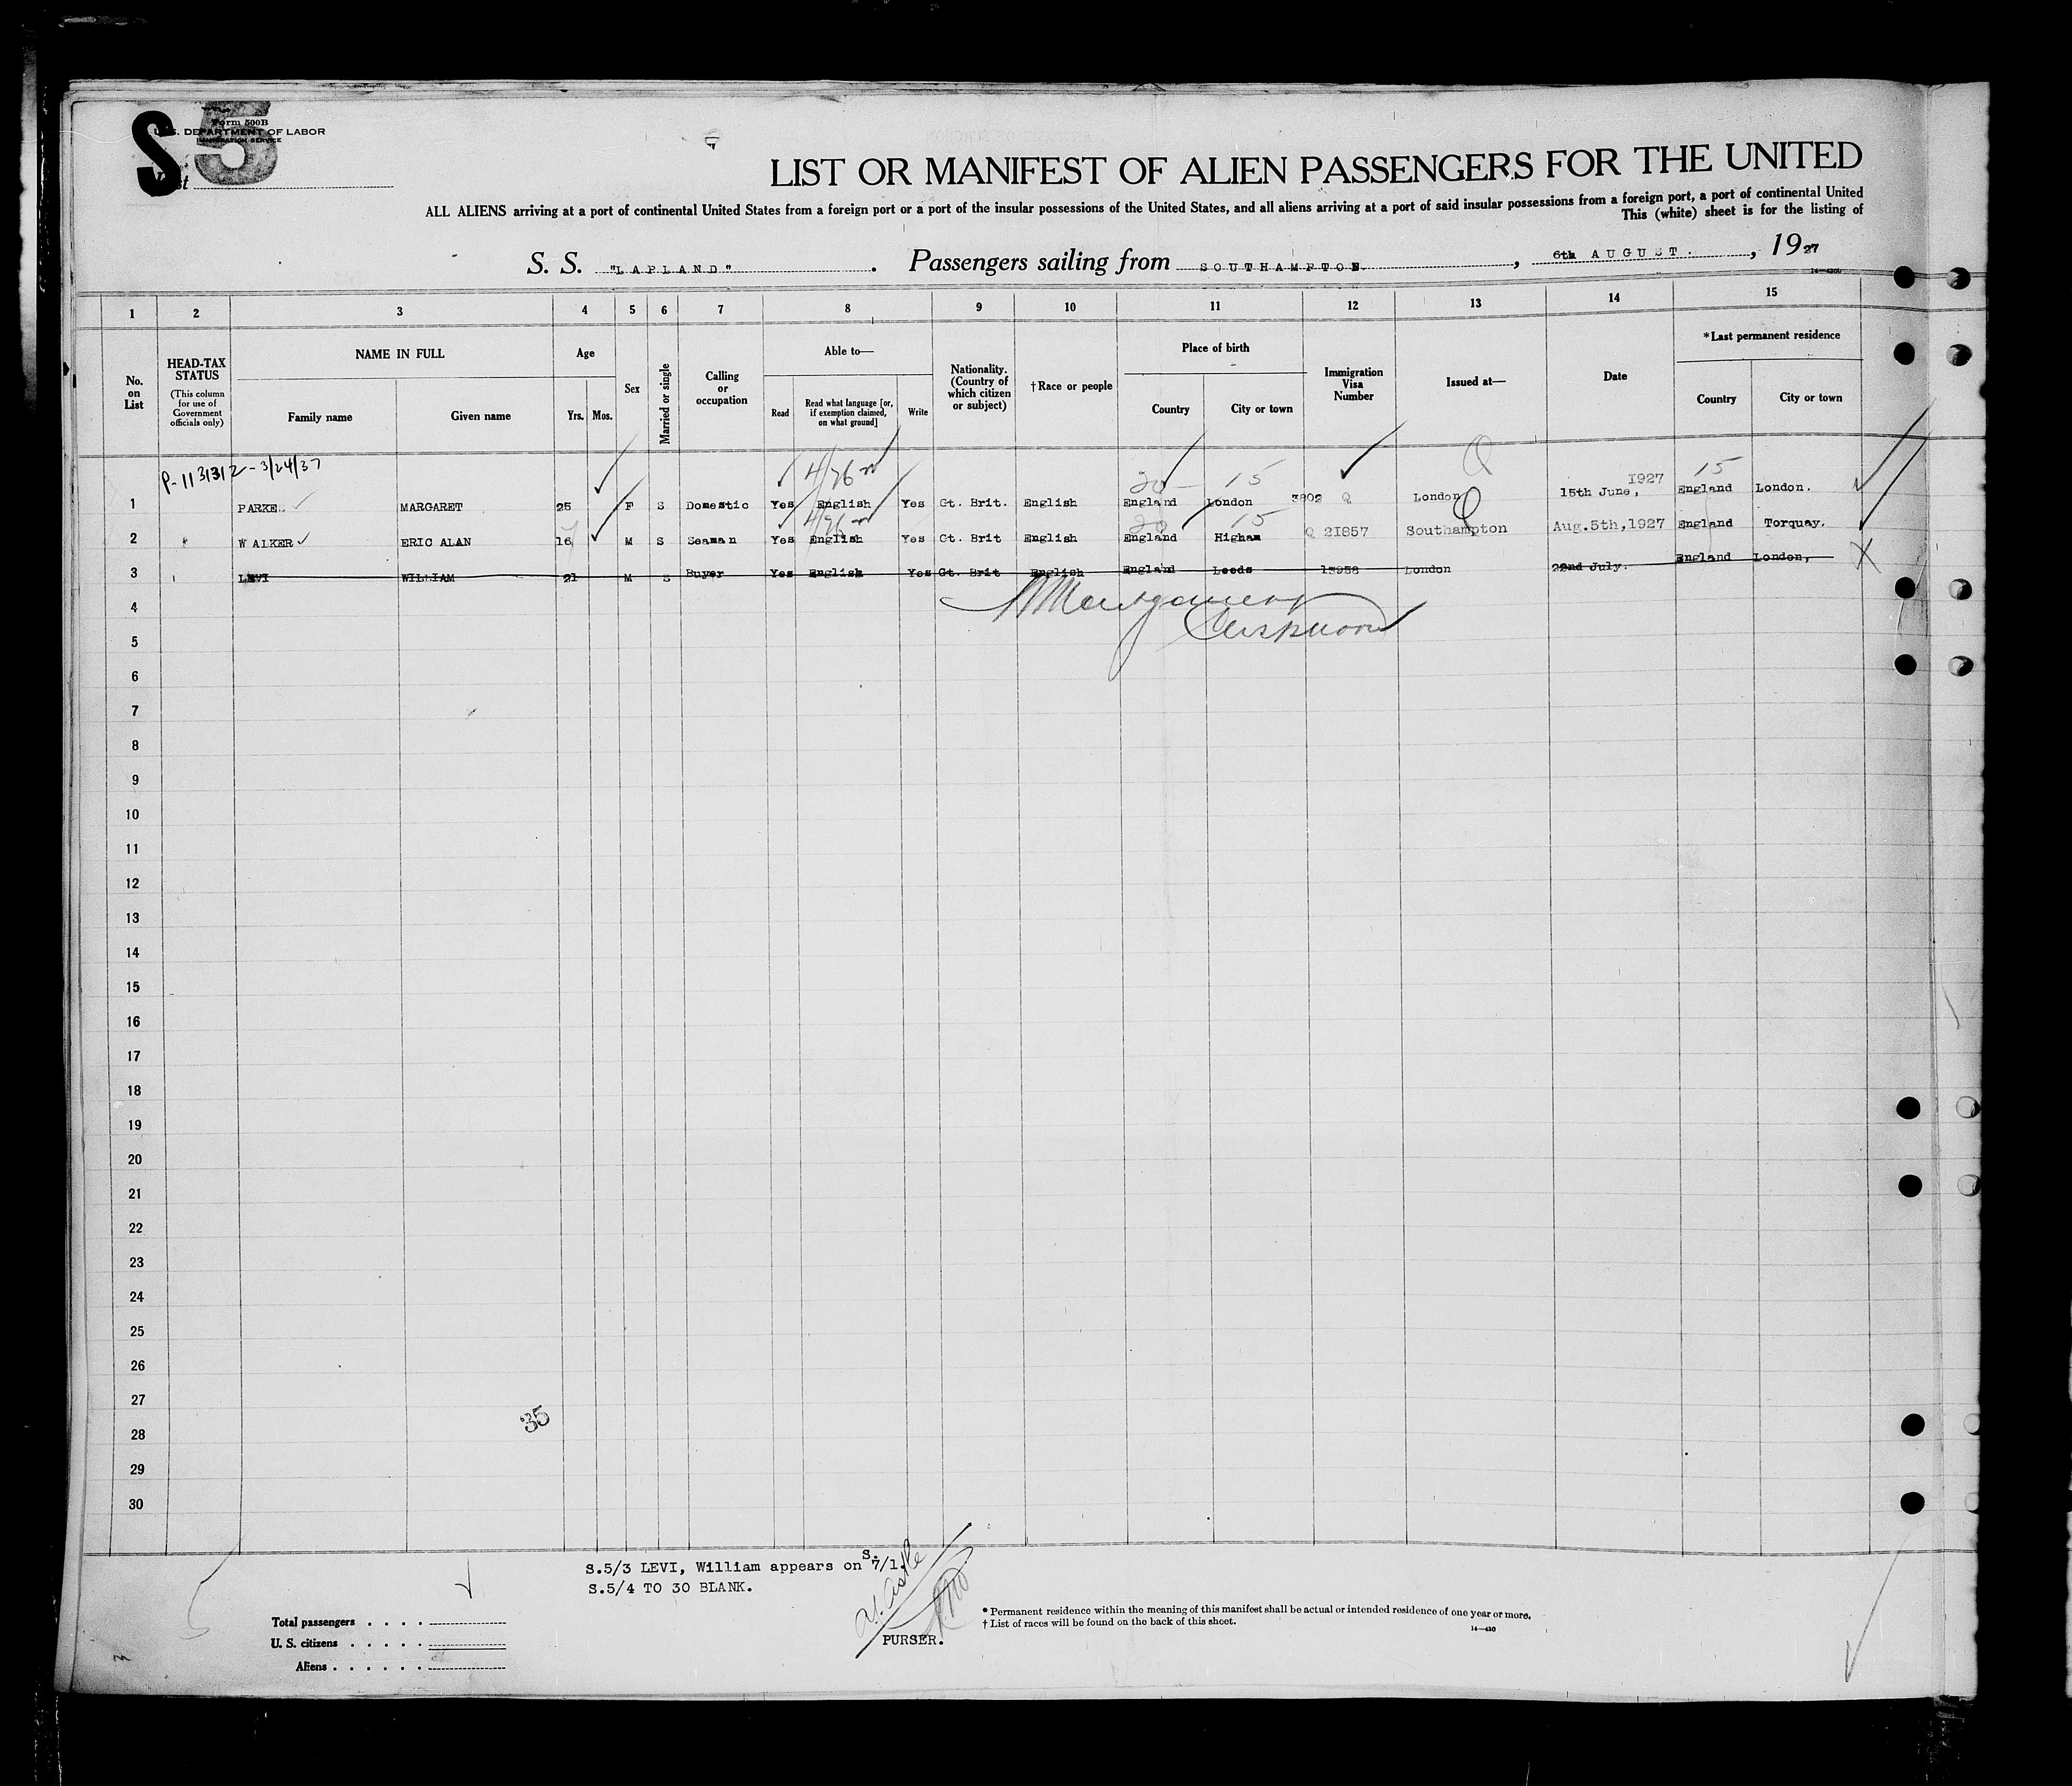 S5
Form 500B
U.S. DEPARTMENT OF LABOR
IMMIGRATION SERVICE
LIST OR MANIFEST OF ALIEN PASSENGERS FOR THE UNITED
ALL ALIENS arriving at a port of continental United States from a foreign port or a port of the insular possessions of the United States, and all aliens arriving at a port of said insular possessions from a foreign port, a port of continental United
This (white) sheet is for the listing of
S. S. "LAPLAND". Passengers sailing from SOUTHAMPTON., 6th AUGUST., 1927
1 2 3 4 5 6 7 8 9 10 11 12 13 14 15
No. on List
HEAD-TAX STATUS
(This column for use of Government officials only)
NAME IN FULL
Family name Given name
Age
Yrs. Mos.
Sex
Married or single
Calling or occupation
Able to—
Read
Read what language [or, if exemption claimed, on what ground]
Write
Nationality. (Country of which citizen or subject)
†Race or people
Place of birth
Country City or town
Immigration Visa Number
Issued at—
Date
*Last permanent residence
Country City or town
P-113132-3/24/37 20 15 Q 15
1 PARKE MARGARET 25 F S Domestic Yes English Yes Gt. Brit. English England London 3802 Q London 15th June, 1927 England London.
20 15
2 WALKER ERIC ALAN 16 M S Seaman Yes English Yes Gt. Brit English England Higham Q 21857 Southampton Aug.5th,1927 England Torquay.
3 LEVI WILLIAM 21 M S Buyer Yes English Yes Gt. Brit English England Leeds 13958 London 22nd July. England London,
4
5
6
7
8
9
10
11
12
13
14
15
16
17
18
19
20
21
22
23
24
25
26
27
35
28
29
30
S.5/3 LEVI, William appears on S.7/1.
S.5/4 TO 30 BLANK.
PURSER.
Total passengers . . . .
U. S. citizens . . . . .
Aliens . . . . . .
* Permanent residence within the meaning of this manifest shall be actual or intended residence of one year or more.
† List of races will be found on the back of this sheet.
14—430